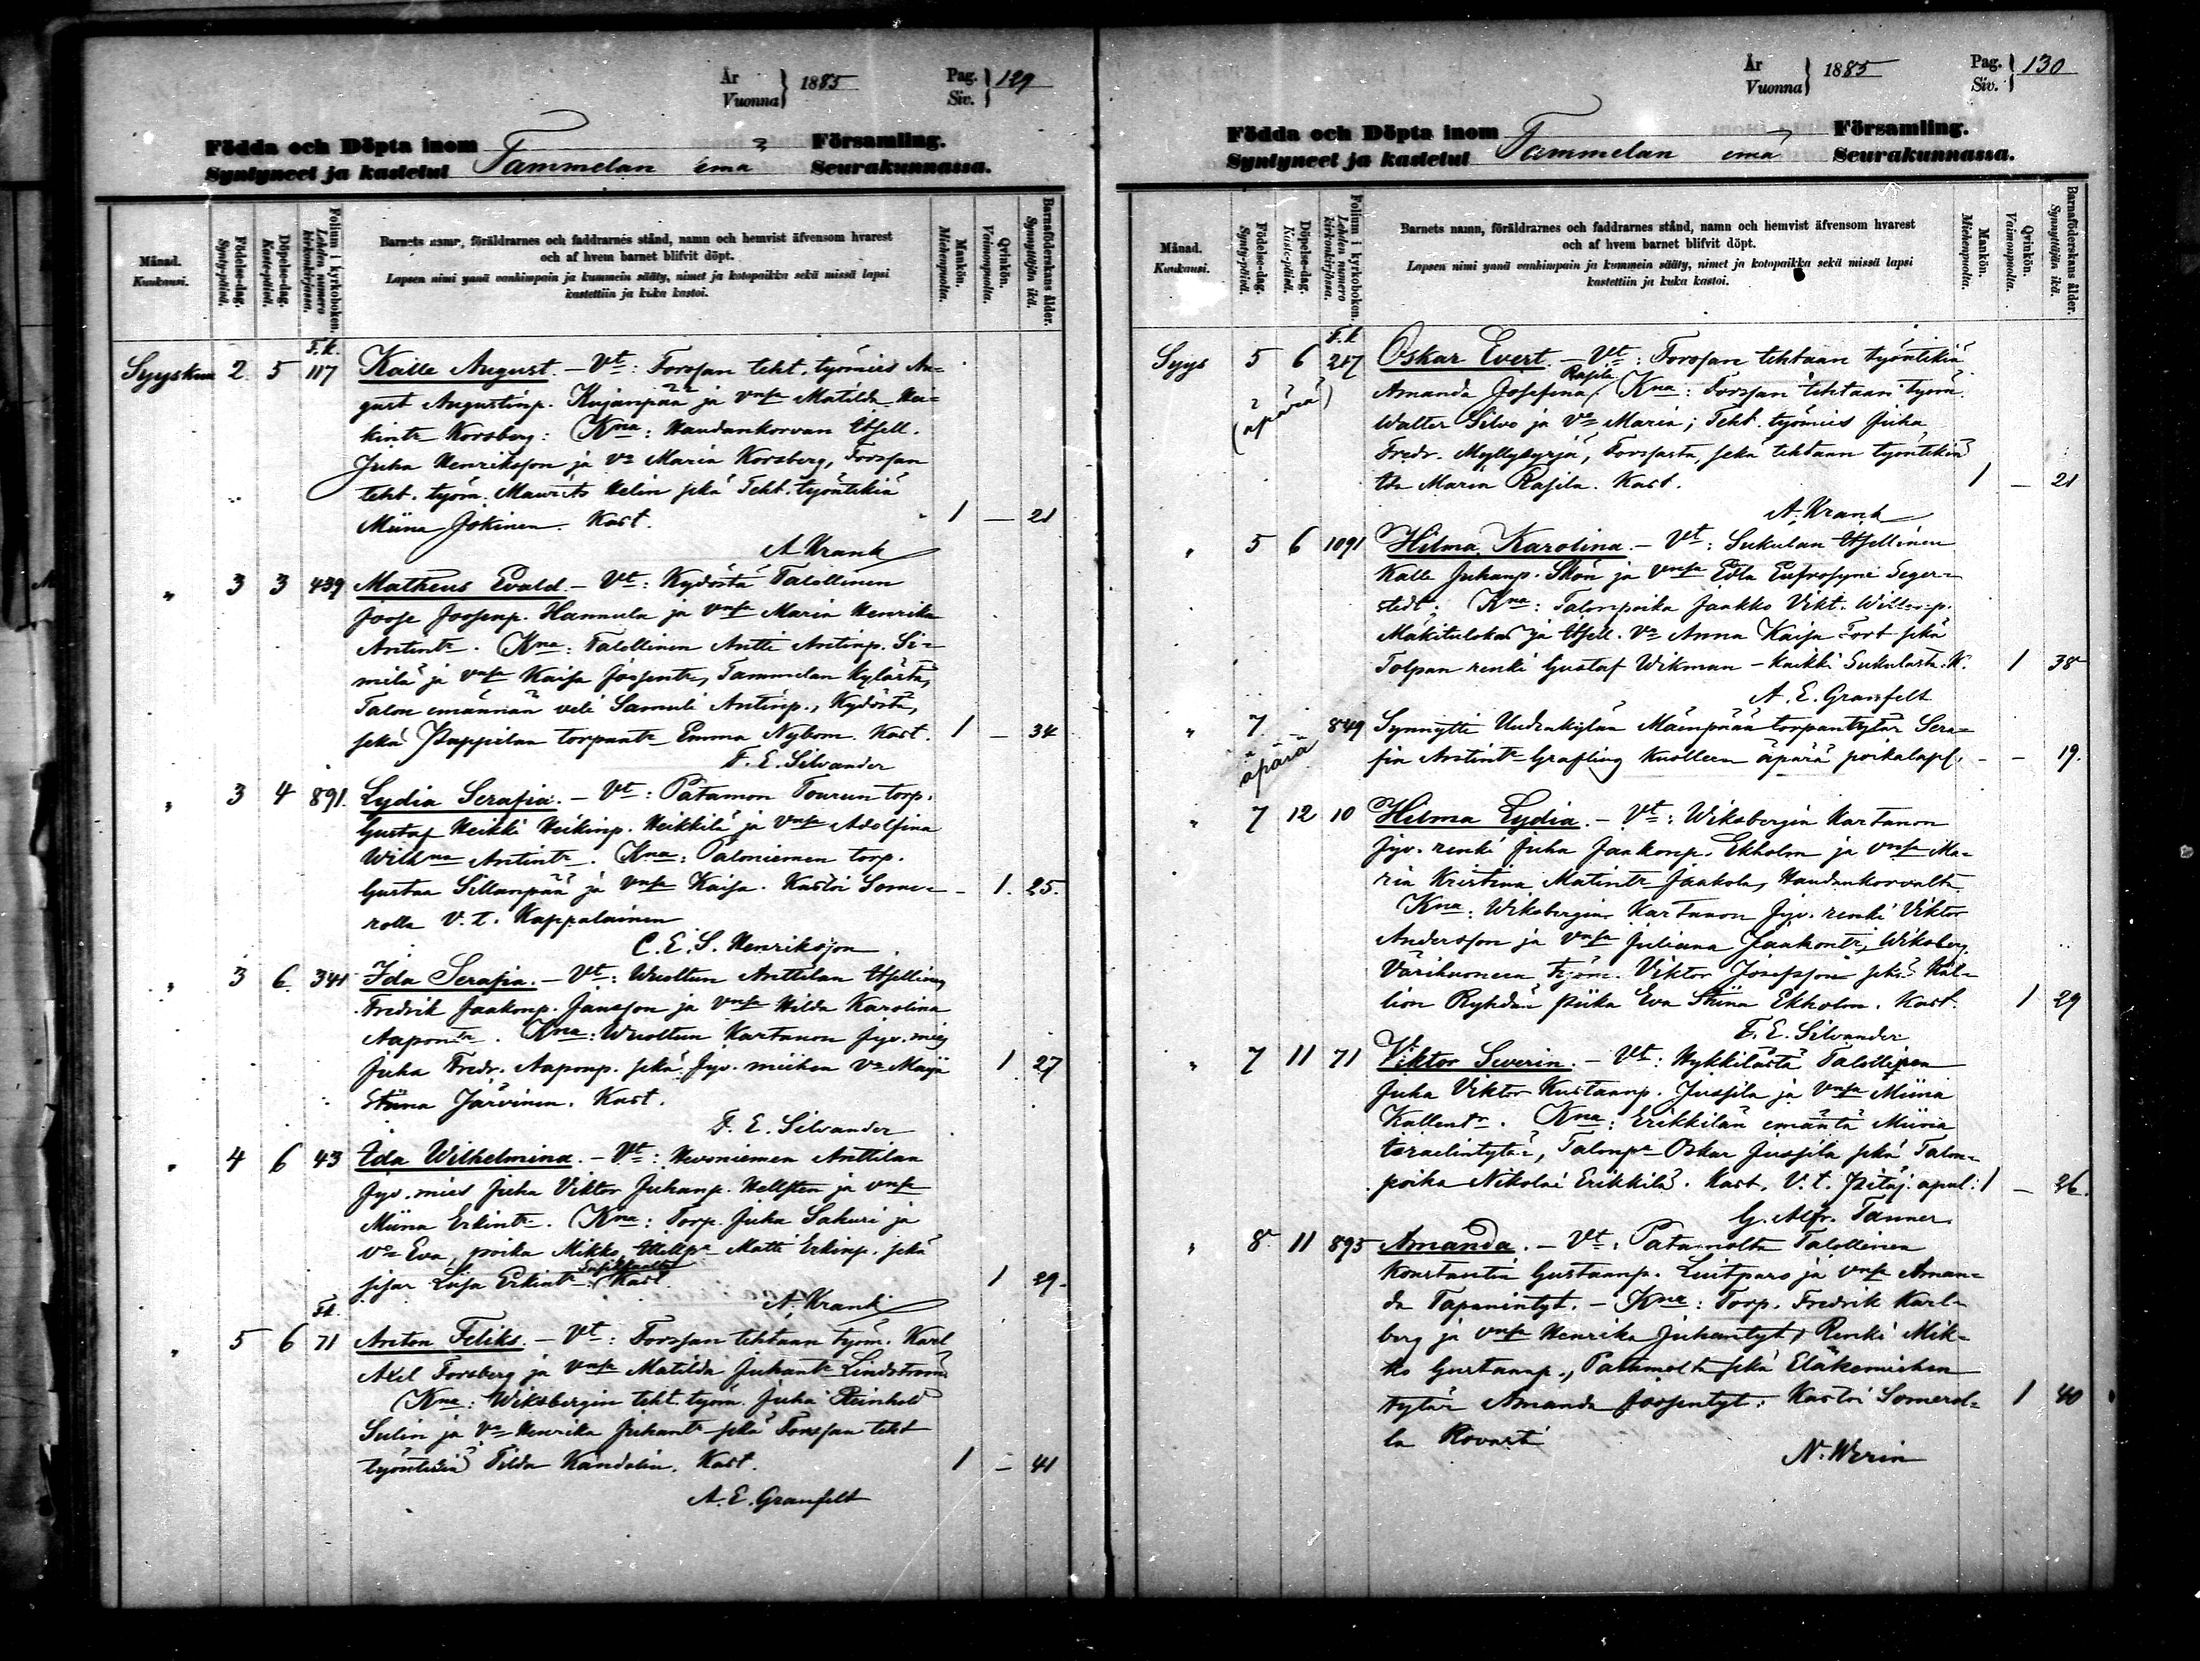 År
Vuonna } 1885
Pag.
Siv. } 129
Födda och Döpta inom Tammelan emä Församling.
Syntyneet ja kastetut Seurakunnassa.
Månad.
Kuukausi.
Födelse-dag.
Synty-päivä.
Döpelse-dag.
Kaste-päivä.
Folium i kyrkoboken.
Lehden numero kirkonkirjassa.
Barnets namn, föräldrarnes och faddrarnes stånd, namn och hemvist äfvensom hvarest
och af hvem barnet blifvit döpt.
Lapsen nimi ynnä vanhimpain ja kummein sääty, nimet ja kotopaikka sekä missä lapsi
kastettiin ja kuka kastoi.
Mankön.
Miehenpuolta.
Qvinkön.
Vaimonpuolta.
Barnaföderskans ålder.
Synnyttäjän ikä.
F.k.
Syysku 2 5 117 Kalle August. – Vt: Forssan teht. työmies Au-
gust Augustinp. Kujanpää ja vnsa Matilda Ha-
kintr Korsberg: Kna: Haudankorvan Itsell.
Juha Henriksson ja vo Maria Korsberg, Forssan
teht. työm. Maurits Helin sekä Teht. työntekiä
Miina Jokinen. Kast. 1 — 21
A. Krank
„ 3 3 439 Matheus Evald. – Vt: Kydöstä Talollinen
Joose Joosenp. Hannula ja vnsa Maria Henrika
Antintr. Kna: Talollinen Antti Antinp. Si-
milä ja vnsa Kaisa Joosentr, Tammelan kylästä,
Talon emännän veli Samuli Antinp., Kydöstä,
sekä Pappilan torpantr Emma Nybom. Kast. 1 — 34
F. E. Silvander
„ 3 4 891. Lydia Serafia. – Vt: Patamon Tourun torp.
Gustaf Heikki Heikinp. Heikkilä ja vnsa Adolfina
Wilhna Antintr. Kna: Paloniemen torp.
Gustaa Sillanpää ja vnsa Kaisa. Kastoi Some- – 1. 25.
rolla V. t. Kappalainen
C. E. S. Henriksson
„ 3 6. 341 Ida Serafia. – Vt: Wuoltun Anttilan Itselling
Fredrik Jaakonp. Jansson ja vnsa Hilda Karolina
Aapontr. Kna: Wuoltun Kartanon Jyv. mies
Juha Fredr. Aaponp. sekä Jyv. miehen vo Maija 1 27
Stiina Järvinen. Kast.
F. E. Silvander
„ 4 6 43 Ida Wilhelmina. – Vt: Hevoniemen Anttilan
Jyv. mies Juha Viktor Juhanp. Hellsten ja vnsa
Miina Erkintr. Kna: Torp. Juha Sakuri ja
vo Eva, poika Mikko, Matti Erkinp. sekä
sisar Liisa Erkintr. Kast. 1 29.
A. Krank
Fk.
„ 5 6 71 Anton Feliks. – Vt: Forssan tehtaan työm. Karl
Axel Forsberg ja vnsa Matilda Juhantr Lindström.
Kna: Wiksbergin teht. työm. Juha Reinhold
Sulin ja vo Henrika Juhantr sekä Forssan teht
työntekiä Tilda Kandelin. Kast. 1 – 41
A. E. Granfelt
År
Vuonna } 1885
Pag.
Siv. } 130
Födda och Döpta inom Tammelan emä Församling.
Syntyneet ja kastetut Seurakunnassa.
Månad.
Kuukausi.
Födelse-dag.
Synty-päivä.
Döpelse-dag.
Kaste-päivä.
Folium i kyrkoboken.
Lehden numero kirkonkirjassa.
Barnets namn, föräldrarnes och faddrarnes stånd, namn och hemvist äfvensom hvarest
och af hvem barnet blifvit döpt.
Lapsen nimi ynnä vanhimpain ja kummein sääty, nimet ja kotopaikka sekä missä lapsi
kastettiin ja kuka kastoi.
Mankön.
Miehenpuolta.
Qvinkön.
Vaimonpuolta.
Barnaföderskans ålder.
Synnyttäjän ikä.
F.k
Syys 5 6 217 Oskar Evert. – Vt: Forssan tehtaan työntekiä
(äpärä) Amanda Josefina Rajila. Kna: Forssan tehtaan työm.
Walter Silvo ja vo Maria; Teht. työmies Juha
Fredr. Myllykyrjä, Forssasta, sekä tehtaan työntekiä
Ida Maria Rajila. Kast. 1 — 21
A. Krank
„ 5 6 1091 Hilma Karolina. – Vt: Sukulan Itsellinen
Kalle Juhanp. Skön ja vnsa Edla Eufrosyne Seger-
stedt; Kna: Talonpoika Jaakko Vikt.
Mäkitulokas ja Itsell. vo Anna Kaisa Fort sekä
Tolpan renki Gustaf Wikman – Kaikki Sukulasta. K. 1 38
A. E. Granfelt
„ 7. – 849 Synnytti Uudenkylän Mäenpään torpantytär Sera-
äpärä fia Antintr Grafling kuolleen äpärä poikalaps. – – 19.
„ 7 12 10 Hilma Lydia. – Vt: Wiksbergin Kartanon
Jyv. renki Juha Jaakonp. Ekholm ja vnsa Ma-
ria Kristina Matintr Jaakola, Haudankorvalta.
Kna: Wiksbergin Kartanon Jyv. renki Viktor
Andersson ja vnsa Juliana Jaakontr, Wiksberg.
Värihuoneen työm. Viktor Josefsson sekä Kal-
lion Ryhdän piika Eva Stiina Ekholm. Kast. 1 29
F. E. Silvander
„ 7 11 71 Viktor Severin. – Vt: Hykkilästä Talollinen
Juha Viktor Kustaanp. Jussila ja vnsa Miina
Kallentr. Kna: Erikkilän emäntä Miina
Israelintytär, Talonpa Oskar Jussila sekä Talon-
poika Nikolai Erikkilä. Kast. V. t. Pitäj. apul: 1 — 26.
G. Alfr. Tanner.
„ 8. 11 895 Amanda. – Vt: Patamolta Talollinen
Konstantin Gustaanp. Luitparo ja vnsa Aman-
da Tapanintyt. – Kna: Torp. Fredrik Karl-
berg ja vnsa Henrika Juhantyt, Renki Mik-
ko Gustaanp., Patamolta sekä Eläkemiehen
tytär Amanda Joosentyt. Kastoi Somerol- 1 40
la Rovasti
N. Werin